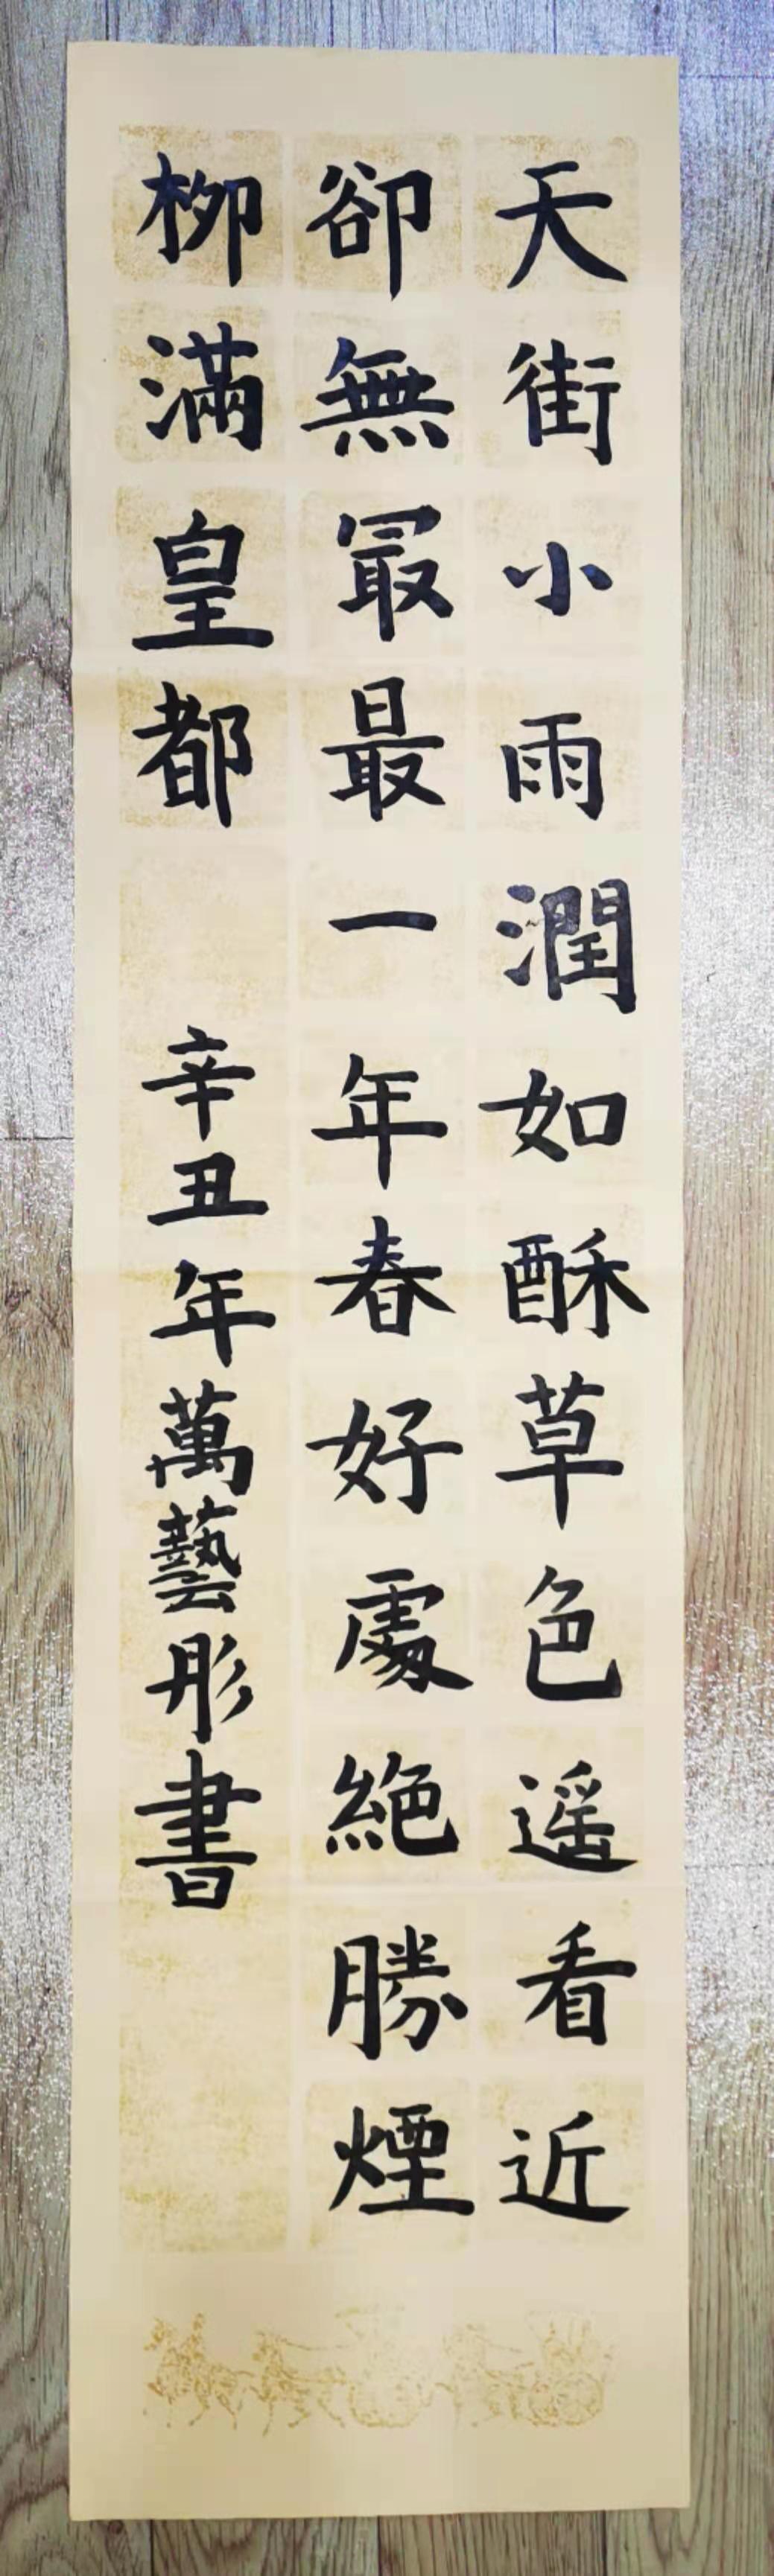 天街小雨潤如酥草色遥看近
卻無冣最一年春好處絶勝煙
柳滿皇都
辛丑年萬藝彤書